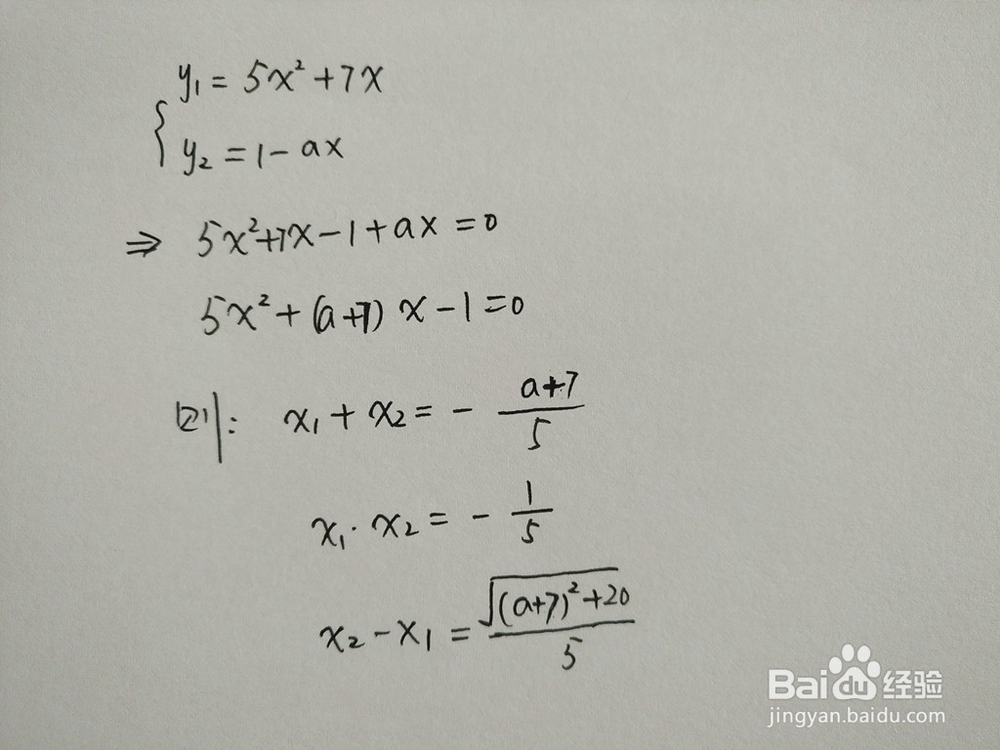 y₁ = 5x² + 7x
y₂ = 1 - ax
⇒ 5x²+7x-1+ax=0
5x²+(a+7)x-1=0
则: x₁+x₂=-(a+7)/5
x₁·x₂=-1/5
x₂-x₁=√((a+7)²+20)/5
Baidu经验
jingyan.baidu.com